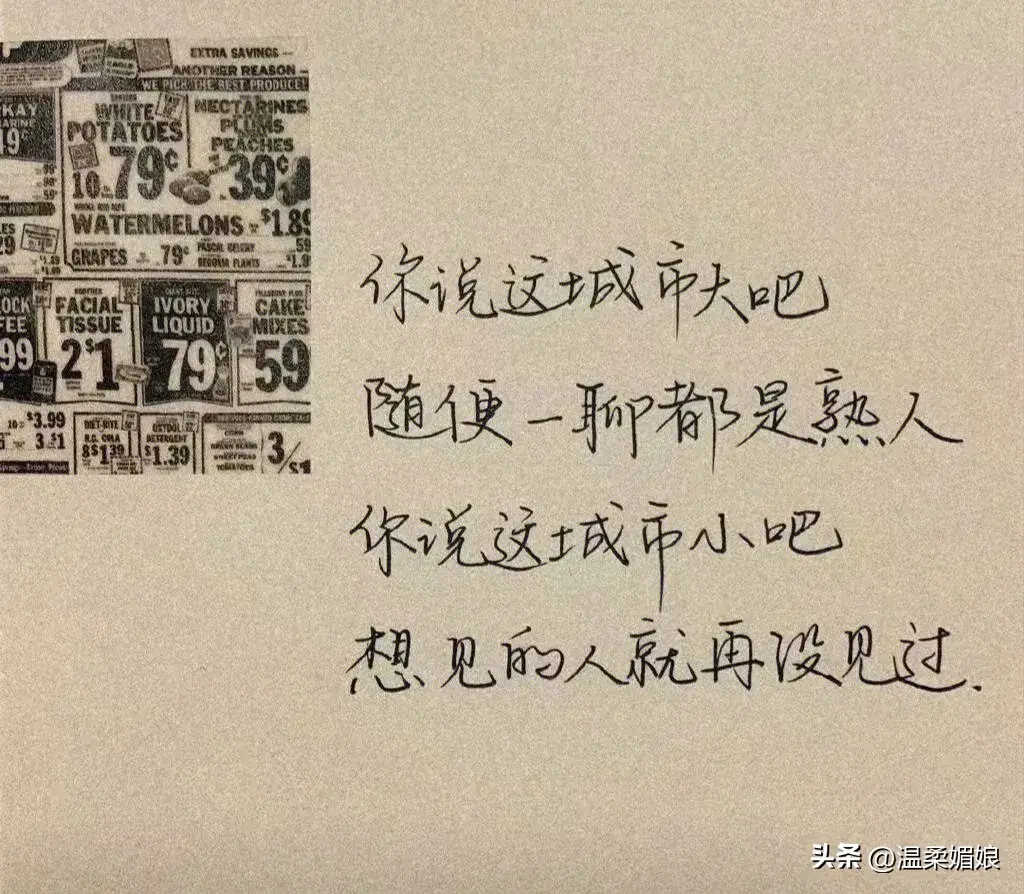 EXTRA SAVINGS —
ANOTHER REASON —
WE PICK THE BEST PRODUCE!
KAY
WHITE
POTATOES
10 79¢
NECTARINES
PLUMS
PEACHES
39¢
WATERMELONS $1.89
GRAPES 79¢
PASCAL CELERY 59
SEQUOIA PLANTS
FACIAL
TISSUE
2 $1
IVORY
LIQUID
79¢
CAKE
MIXES
59
99
$3.99
3 $1
DIET-RITE
R.C. COLA
8 $1.39
OXYDOL
DETERGENT
$1.39
GREEN BEANS
TOMATOES
3/$1
你说这城市大吧
随便一聊都是熟人
你说这城市小吧
想见的人就再没见过.
头条 @温柔媚娘